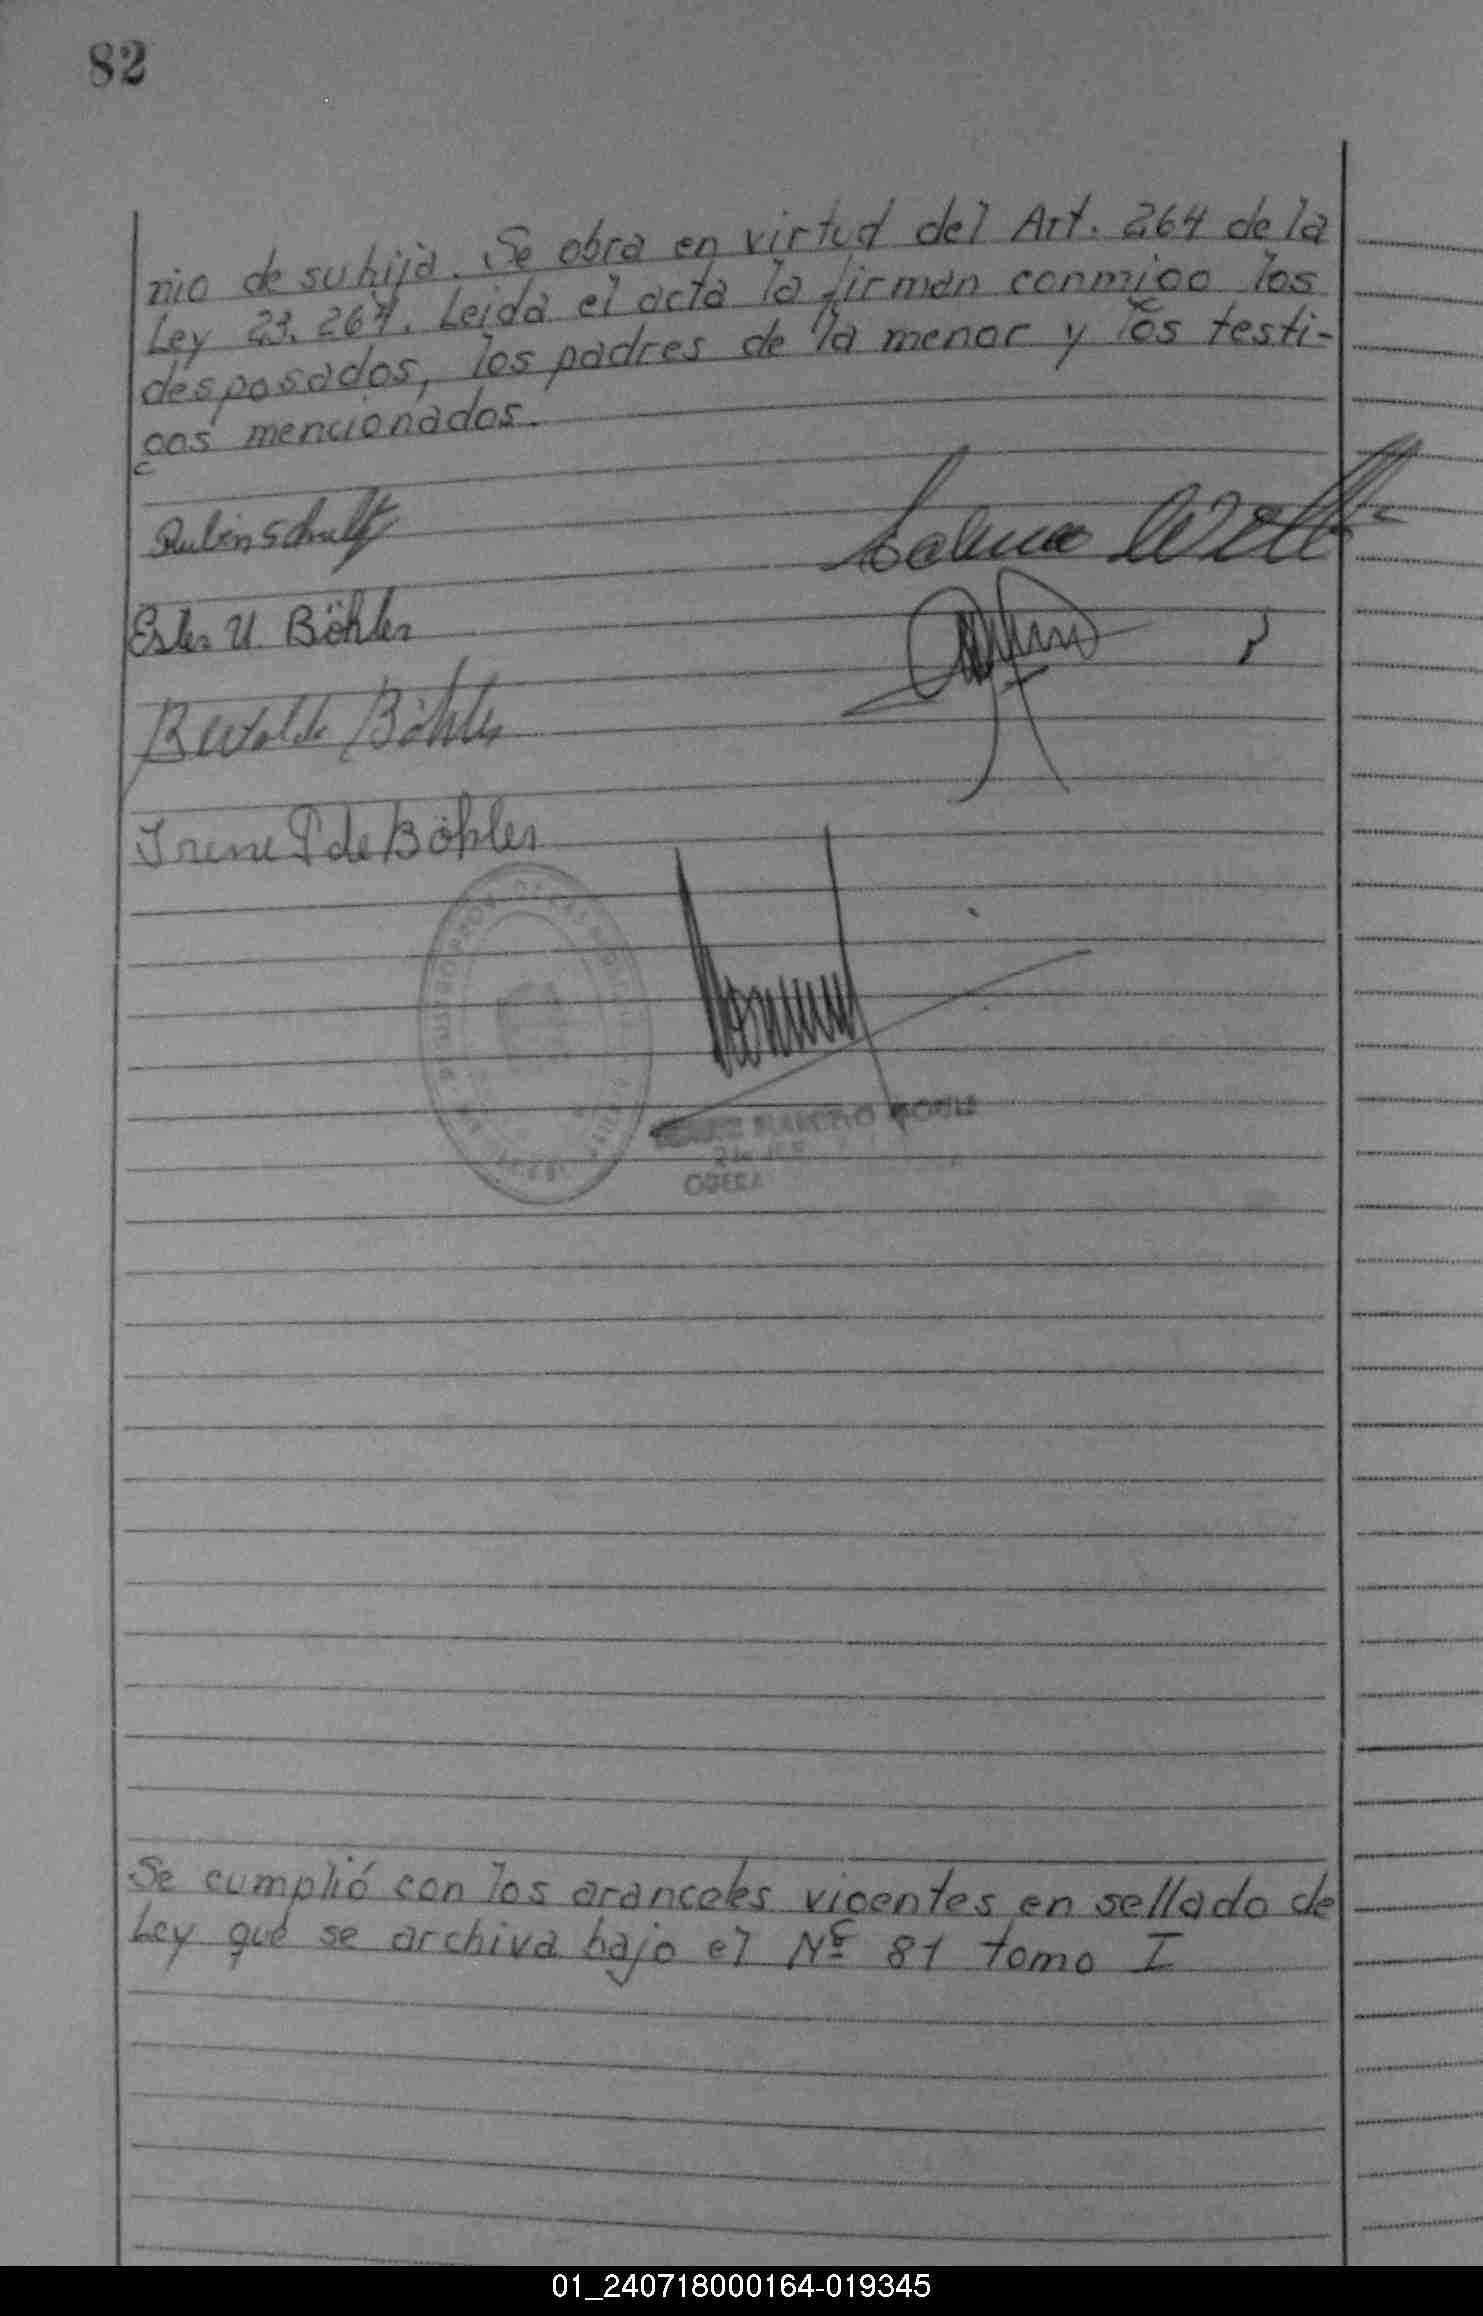 82
nio de su hija. Se obra en virtud del Art. 264 de la
Ley 23.264. Leida el acta la firman conmigo los
desposados, los padres de la menor y los testi-
gos mencionados.
Ruben Schultz
Ester U. Böhler
Bertoldo Böhler
Irene P de Böhler
OBERA
Se cumplió con los aranceles vigentes en sellado de
Ley que se archiva bajo el Nº 81 tomo I
01_240718000164-019345